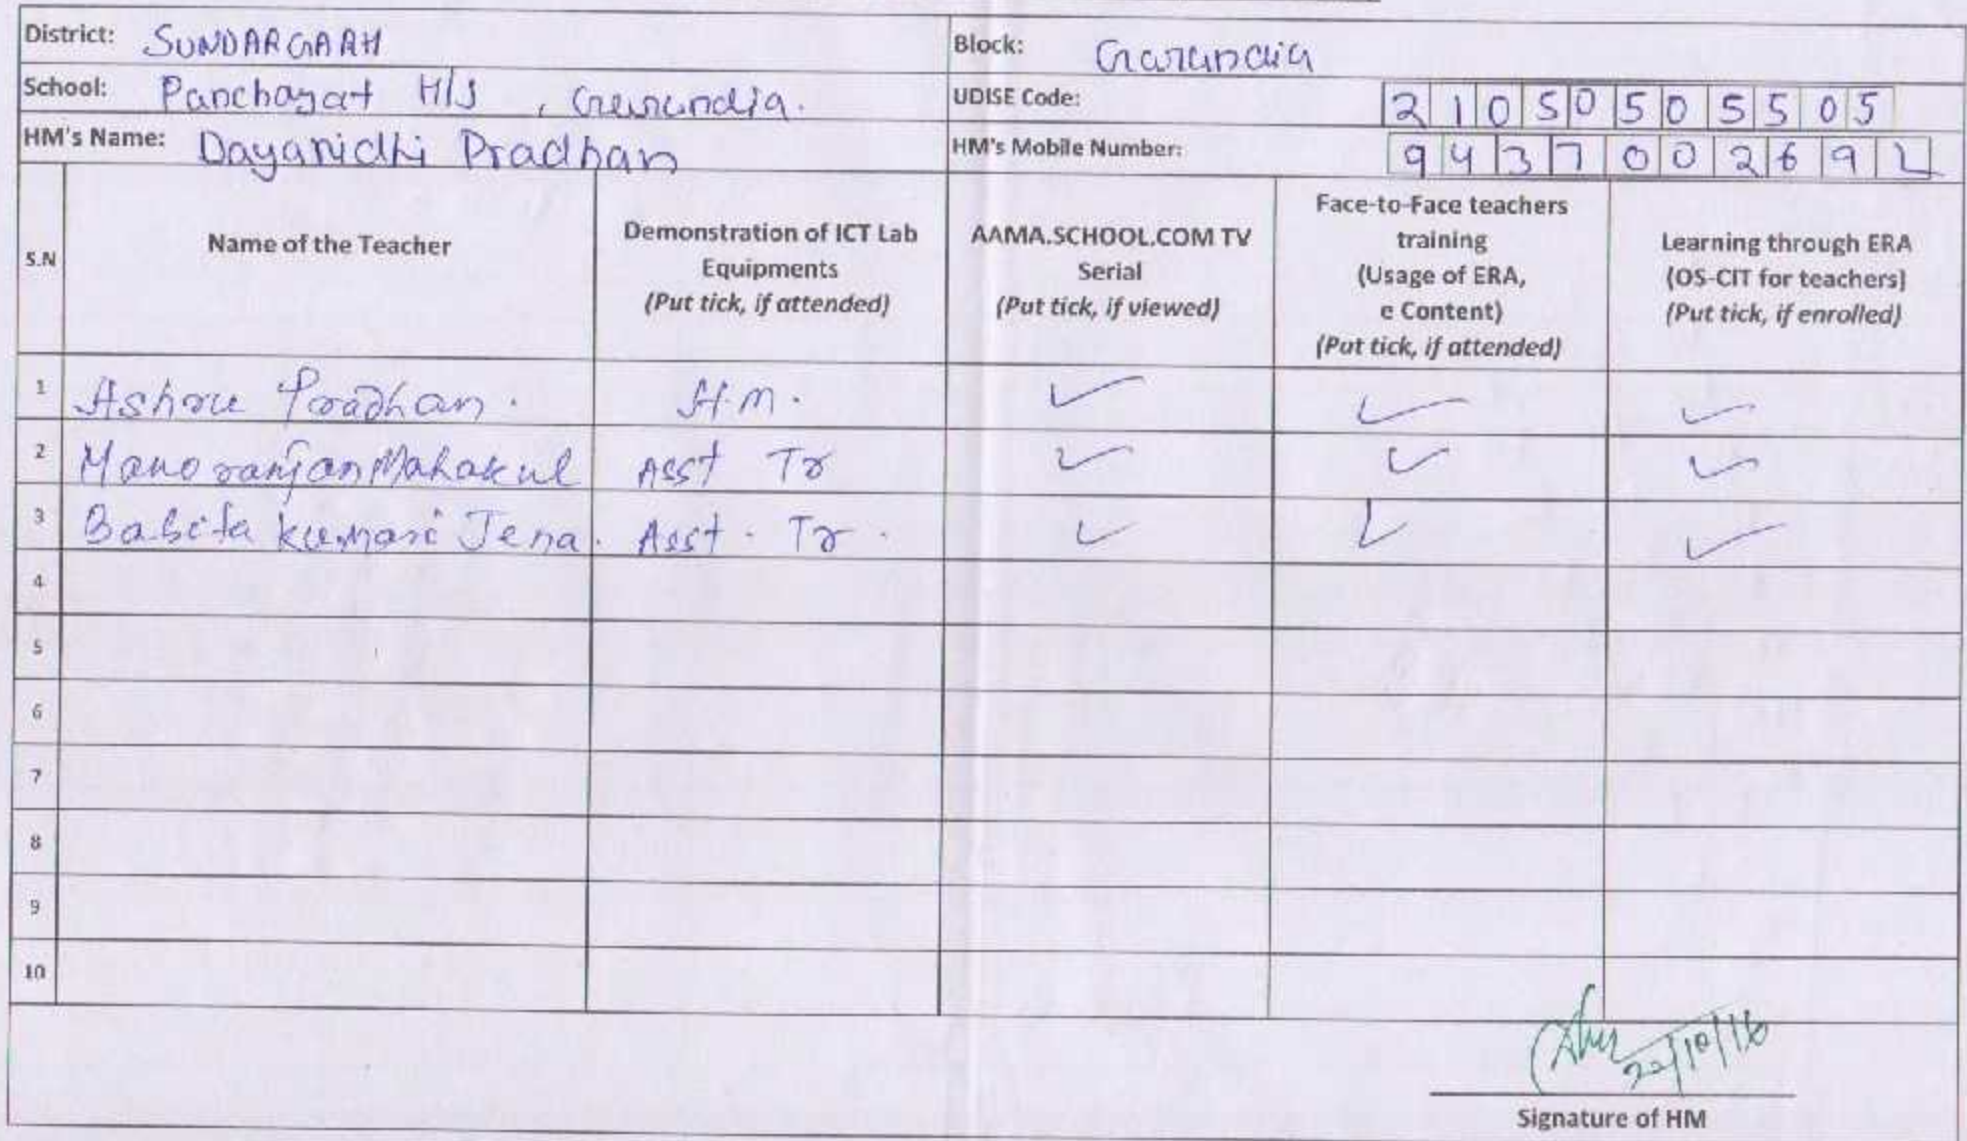 District: SUNDARGARH Block: Gurundia
School: Panchayat H/S , Gurundia. UDISE Code: 21050505505
HM's Name: Dayanidhi Pradhan HM's Mobile Number: 943700269
S.N Name of the Teacher Demonstration of ICT Lab Equipments (Put tick, if attended) AAMA.SCHOOL.COM TV Serial (Put tick, if viewed) Face-to-Face teachers training (Usage of ERA, e Content) (Put tick, if attended) Learning through ERA (OS-CIT for teachers) (Put tick, if enrolled)
1 Ashru Pradhan. H.M. ✓ ✓ ✓
2 Manoranjan Mahakul Asst Tr ✓ ✓ ✓
3 Babita Kumari Jena. Asst. Tr. ✓ ✓ ✓
4
5
6
7
8
9
10
/10/16
Signature of HM